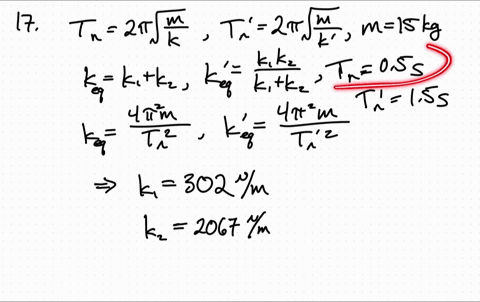 17. Tn = 2π√(m/k) , Tn' = 2π√(m/k') , m = 15 kg
keq = k1 + k2 , k'eq = k1k2/(k1 + k2) , Tn = 0.5 s
Tn' = 1.5 s
keq = 4π²m/Tn² , k'eq = 4π²m/Tn'²
⇒ k1 = 302 N/m
k2 = 2067 N/m